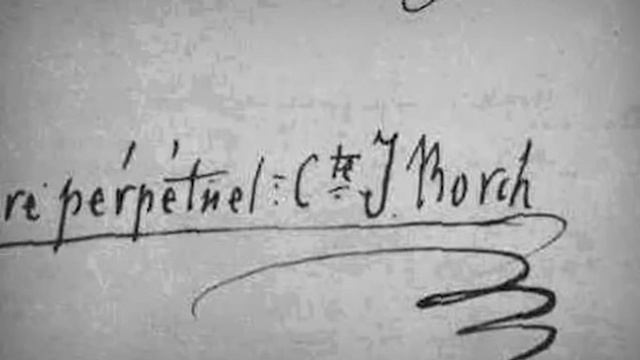 re perpétuel : Cte J. Borch